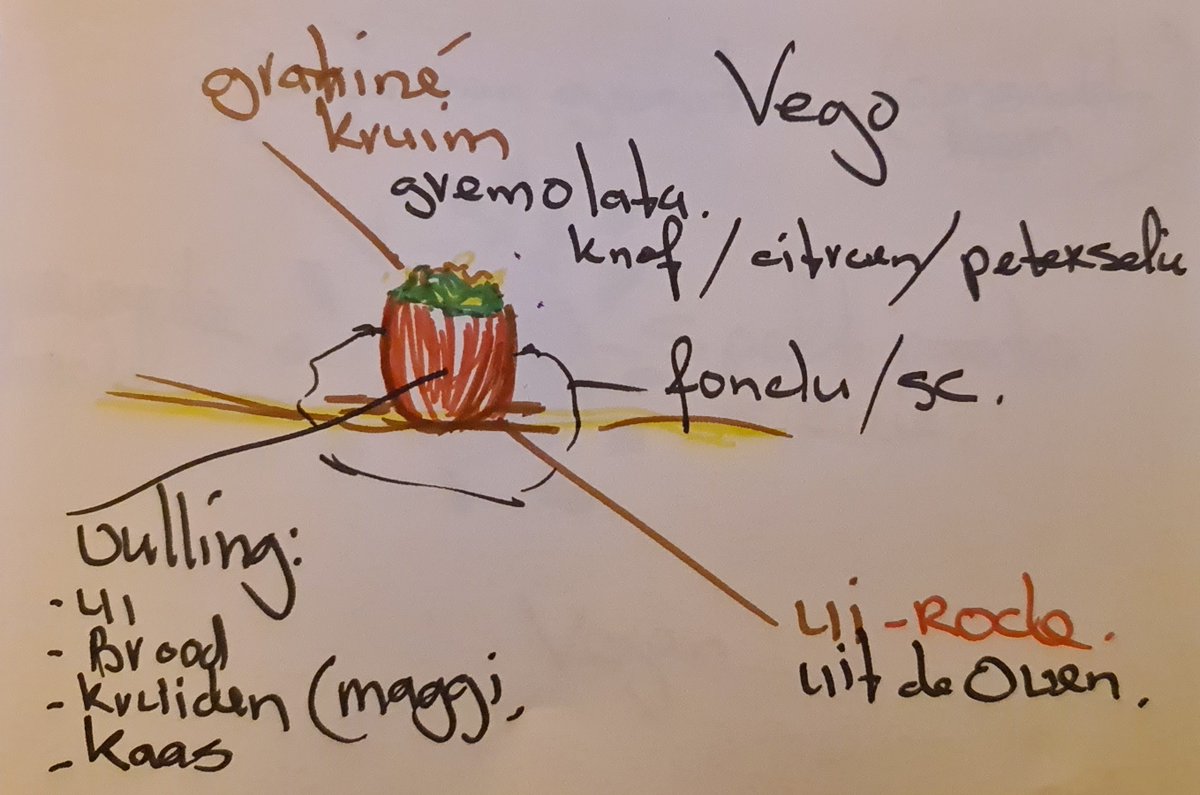 gratiné
kruim
Vego
gremolata.
knof / citroen / peterselie
fondu / sc.
vulling:
- ui
- Brood
- kruiden (maggi,
- kaas
ui - Rode.
uit de Oven.